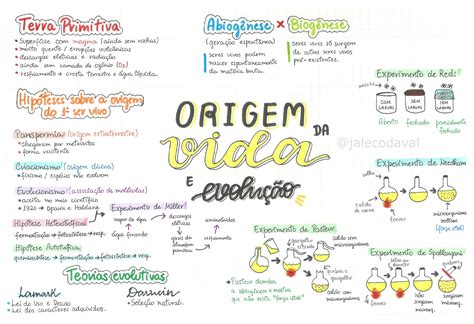 Terra Primitiva
• Superfície com magma (ainda sem rochas)
• muito quente / erupções vulcânicas
• descargas elétricas e radiação
• ainda sem camada de ozônio (O3)
• resfriamento → crosta terrestre e água líquida.
Hipóteses sobre a origem do 1º ser vivo
Panspermia (origem extraterrestre)
• chegaram por meteoritos
• forma resistente
Criacionismo (origem divina)
• fixismo / espécies não evoluem
Evolucionismo (associação de moléculas)
• aceita no meio científico
• 1920 → Oparin e Haldane
Hipótese Heterotrófica
fermentação → fotossíntese → resp.
Hipótese Autotrófica
quimiossíntese → fermentação → fotossíntese → resp.
Abiogênese × Biogênese
(geração espontânea)
seres vivos podem
nascer espontaneamente
da matéria bruta.
seres vivos só surgem
de outros seres vivos
pré-existentes.
ORIGEM
DA
vida
E
evolução
@jalecodaval
Experimento de Redi
SEM LARVAS
COM LARVAS
SEM LARVAS
aberto
fechado
parcialmente fechado
Experimento de Needham
caldo de carne
fervido
microrganismos
"força vital"
Experimento de Miller
vapor de água
descargas elétricas
gases da atmosfera primitiva
Experimento de Pasteur
caldo
sem microrg.
quebra o gargalo
com microrg.
• Pasteur derruba
a abiogênese e mostra
que não existe "força vital"
Experimento de Spallanzani
caldo de carne
Teorias evolutivas
Lamark
• Lei do Uso e Desuso
• Lei dos caracteres adquiridos.
Darwin
• Seleção natural.